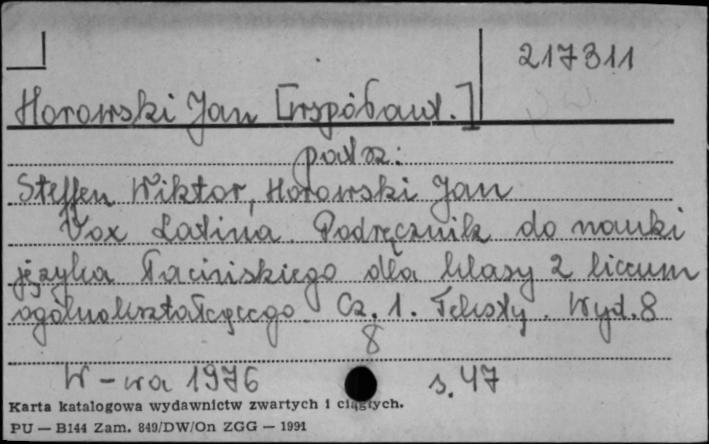 217311
Horowski Jan [współaut.]
patrz:
Steffen Wiktor, Horowski Jan
Vox Latina. Podręcznik do nauki
języka łacińskiego dla klasy 2 liceum
ogólnokształcącego. Cz. 1. Teksty. Wyd. 8
8
W-wa 1976 s. 47
Karta katalogowa wydawnictw zwartych i ciągłych.
PU — B144 Zam. 849/DW/On ZGG — 1991